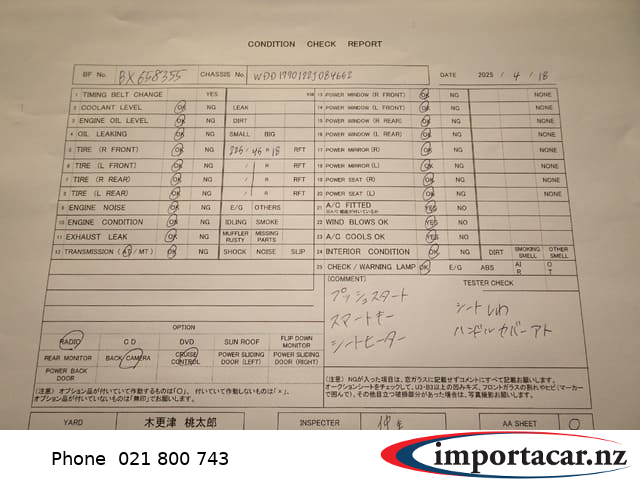 CONDITION CHECK REPORT
BF No. BX658355 CHASSIS No. DATE 2025 / 4 / 18
1 TIMING BELT CHANGE YES KM 13 POWER WINDOW (R FRONT) OK NG NONE
2 COOLANT LEVEL OK NG LEAK 14 POWER WINDOW (L FRONT) OK NG NONE
3 ENGINE OIL LEVEL OK NG DIRT 15 POWER WINDOW (R REAR) OK NG NONE
4 OIL LEAKING OK NG SMALL BIG 16 POWER WINDOW (L REAR) OK NG NONE
5 TIRE (R FRONT) OK NG 225 / 45 R 18 RFT 17 POWER MIRROR (R) OK NG NONE
6 TIRE (L FRONT) OK NG / R RFT 18 POWER MIRROR (L) OK NG NONE
7 TIRE (R REAR) OK NG / R RFT 19 POWER SEAT (R) OK NG NONE
8 TIRE (L REAR) OK NG / R RFT 20 POWER SEAT (L) OK NG NONE
9 ENGINE NOISE OK NG E/G OTHERS 21 A/C FITTED YES NO
10 ENGINE CONDITION OK NG IDLING SMOKE 22 WIND BLOWS OK YES NO
11 EXHAUST LEAK OK NG MUFFLER RUSTY MISSING PARTS 23 A/C COOLS OK YES NO
12 TRANSMISSION (AT/MT) OK NG SHOCK NOISE SLIP 24 INTERIOR CONDITION OK NG DIRT SMOKING SMELL OTHER SMELL
25 CHECK / WARNING LAMP OK E/G ABS AIR OT
(COMMENT) TESTER CHECK
プッシュスタート シートしわ
スマートキー ハンドルカバーアト
シートヒーター
OPTION
RADIO CD DVD SUN ROOF FLIP DOWN MONITOR
REAR MONITOR BACK CAMERA CRUISE CONTROL POWER SLIDING DOOR (LEFT) POWER SLIDING DOOR (RIGHT)
POWER BACK DOOR
(注意) オプション品が付いていて作動するものは「○」、付いていて作動しないものは「×」、
付いていないものは「無印」でお願いします。
(注意) NGが入った項目は、窓ガラスに記載せずコメントにすべて記載お願いします。
オークションシートをチェックして、U3・B3以上の凹みキズ、フロントガラスの割れやヒビ(マーカーで囲んで)、その他目立つ破損部分があった場合は、写真撮影お願いします。
YARD 木更津 桃太郎 INSPECTER AA SHEET ○
Phone 021 800 743
importacar.nz